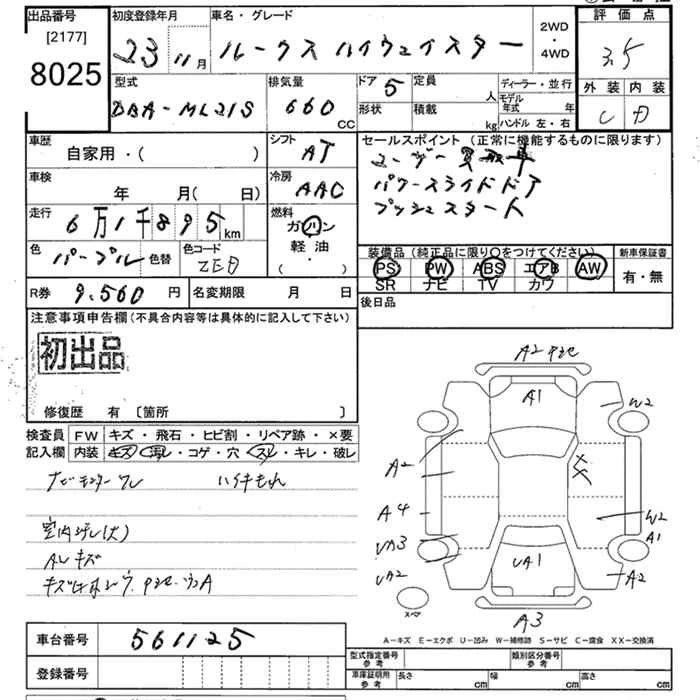 出品番号
[2177]
8025
初度登録年月
23 11月
車名・グレード
ルークス ハイウェイスター
2WD
・
4WD
評価点
3.5
外装 内装
C D
型式
DBA-ML21S
排気量
660 CC
ドア 5
定員 人
形状
積載 kg
ディーラー・並行
モデル年式 年
ハンドル 左・右
車歴
自家用・( )
シフト
AT
セールスポイント (正常に機能するものに限ります)
ユーザー買取車
パワースライドドア
プッシュスタート
車検
年 月( 日)
冷房
AAC
走行
6万1千895km
燃料
ガソリン
軽油・
( )
色
パープル
色替
色コード
装備品 (純正品に限り○をつけてください)
PS PW ABS エアB AW
SR ナビ TV カワ
新車保証書
有・無
R券 9.560 円
名変期限 月 日
後日品
注意事項申告欄 (不具合内容等は具体的に記入して下さい)
初出品
修復歴 有 〔箇所 〕
検査員
記入欄
FW キズ・飛石・ヒビ割・リペア跡・×要
内装 キズ・汚レ・コゲ・穴・スレ・キレ・破レ
ナビモニターワレ
室内汚レ(大)
ALキズ
A2
A1
W2
A2
A4
W2
A1
A2
UA1
A3
スペア
A-キズ E-エクボ U-凹み W-補修跡 S-サビ C-腐食 XX-交換済
車台番号
561125
登録番号
型式指定番号
参考
類別区分番号
参考
車庫証明用
参考
長さ cm
幅 cm
高さ cm